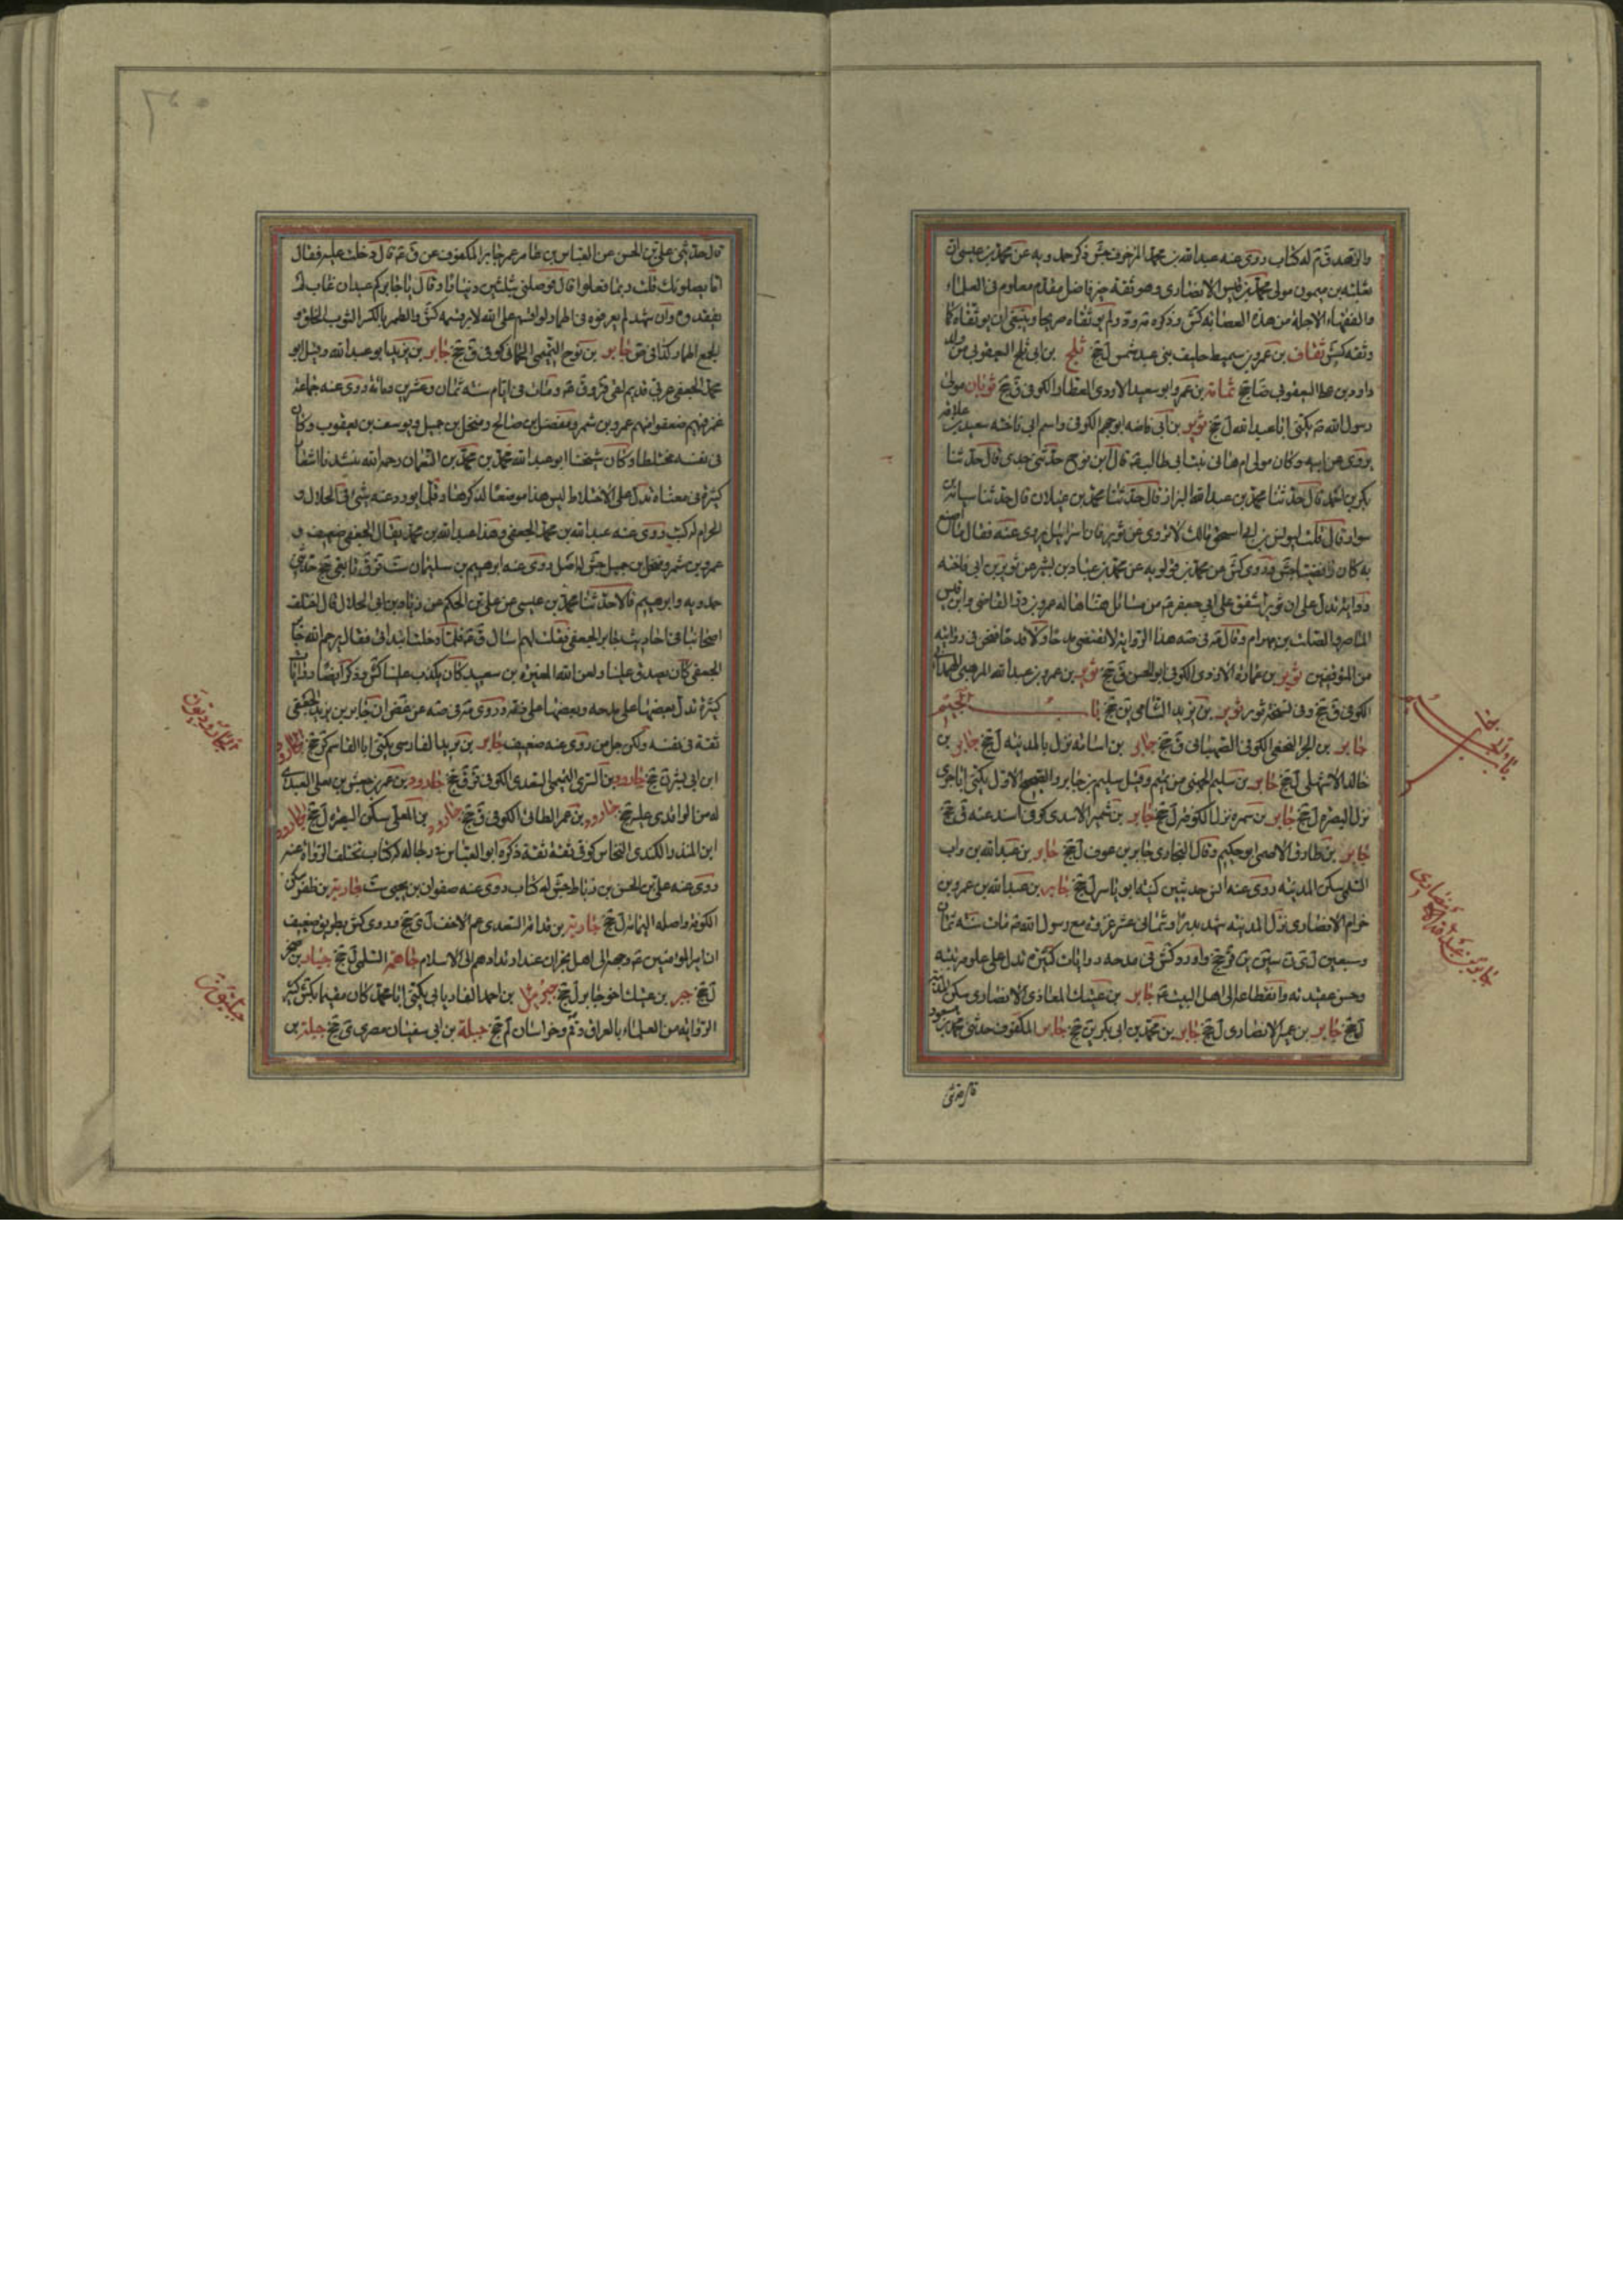 والزهد ق م له كتاب روى عنه عبد الله بن محمد المزخرف جش ذكر حمدويه عن محمد بن عيسى ان
ثعلبة بن ميمون مولى محمد بن قيس الانصارى وهو ثقة خير فاضل مقدم معلوم فى العلماء
والفقهاء الاجلة من هذه العصابة كش
وثقه كش ثقاف بن عمرو بن سميط حليف بنى عبد شمس ل جخ ثلج بن ابى ثلج اليعقوبى من ولد
داود بن على اليعقوبى ضا جخ ثمامة بن عمرو ابو سعيد الازدى العطار الكوفى ق جخ ثوبان مولى
رسول الله يكنى ابا عبد الله ل جخ ثوير بن ابى فاخته ابو جهم الكوفى واسم ابى فاخته سعيد بن علاقه
يروى عن ابيه وكان مولى ام هانى بنت ابى طالب قال ابن نوح حدثنى جدى قال حدثنا
بكر بن احمد قال حدثنا محمد بن عبد الله البزاز قال حدثنا محمد بن غيلان قال حدثنا شبابة بن
سوار قال قلت ليونس بن ابى اسحق مالك لا تروى عن ثوير فان اسرائيل يروى عنه فقال ما اصنع
به كان رافضيا جش وروى كش عن محمد بن قولويه عن محمد بن عباد بن بشير عن ثوير بن ابى فاخته
رواية تدل على ان ثويرا اشفق على ابى جعفر من مسائل هيأها له عمرو بن ذر القاضى وابن قيس
الماصر والصلت بن بهرام
ثوير بن عمارة الازدى الكوفى ابو الحسن ق جخ ثوير بن عمرو بن عبد الله المرهبى الهمدانى
الكوفى ق جخ وفى نسخة ثور ثوير بن يزيد الشامى ين جخ باب الجيم
جابر بن ابحر النخعى الكوفى الصهبانى ق جخ جابر بن اسامة نزل بالمدينة ل جخ جابر بن
خالد الاشهلى ل جخ جابر بن سليم الهجيمى من تميم وقيل سليم بن جابر والصحيح الاول يكنى ابا جرى
نزل البصرة ل جخ جابر بن سمرة نزل الكوفة ل جخ جابر بن شمير الاسدى كوفى اسند عنه ق جخ
جابر بن طارق الاحمسى ابو حكيم وقال البخارى جابر بن عوف ل جخ جابر بن عبد الله بن رياب
السلمى سكن المدينة روى عنه انس حديثين كنيته ابو ياسر ل جخ جابر بن عبد الله بن عمرو بن
حرام الانصارى نزل المدينة شهد بدرا وثمانى عشر غزوة مع رسول الله مات سنة ثمان
وسبعين ل ى ن سين ين قر جخ واورد كش فى مدحه روايات كثيرة تدل على علو مرتبته
وحسن عقيدته وانقطاعه الى اهل البيت جابر بن عتيك المعاذى الانصارى سكن المدينة
ل جخ جابر بن عمير الانصارى ل جخ جابر بن محمد بن ابى بكر ين جخ جابر المكفوف حدثنى محمد بن مسعود
باب الجيم
جابر بن عبد الله الانصارى
قال حدثنى
قال حدثنى على بن الحسن عن العباس بن عامر عن جابر المكفوف عن ق قال دخلت عليه فقال
اما يصلونك قلت ربما فعلوا قال فوصلنى بثلثين دينارا وقال يا جابر كم عبد ان غاب لم
يفقد وان شهد لم يعرفوه فى اطمار لو اقسم على الله لابر قسمه كش والطمر بالكسر الثوب الخلق و
الجمع اطمار جابر بن نوح التميمى الحمانى كوفى ق جخ جابر بن يزيد ابو عبد الله وقيل ابو
محمد الجعفى عربى قديم لقى قر و ق ومات فى ايامه سنة ثمان وعشرين ومائة روى عنه جماعة
غمز فيهم وضعفوا منهم عمرو بن شمر ومفضل بن صالح ومنخل بن جميل ويوسف بن يعقوب وكان
فى نفسه مختلطا وكان شيخنا ابو عبد الله محمد بن محمد بن النعمان رحمه الله ينشدنا اشعارا
كثيرة فى معناه تدل على الاختلاط ليس هذا موضعا لذكرها وقلما يورد عنه شئ فى الحلال و
الحرام له كتب روى عنه عبد الله بن محمد الجعفى وهذا عبد الله بن محمد يقال الجعفى ضعيف و
عمرو بن شمر ومنخل بن جميل جش له اصل روى عنه ابرهيم بن سليمان ست قر ق تابعى جخ حدثنى
حمدويه وابرهيم قالا حدثنا محمد بن عيسى عن على بن الحكم عن زياد بن ابى الحلال قال اختلف
اصحابنا فى احاديث جابر الجعفى فقلت لهم اسال ق فلما دخلت ابتدأنى فقال رحم الله جابر
الجعفى كان يصدق علينا ولعن الله المغيرة بن سعيد كان يكذب علينا كش وذكر ايضا روايات
كثيرة تدل بعضها على مدحه وبعضها على ذمه وروى عن غض ان جابر بن يزيد الجعفى
ثقة فى نفسه ولكن جل من روى عنه ضعيف جابر بن يزيد الفارسى يكنى ابا القاسم كر جخ جارود
ابن ابى بشر ق جخ جارود بن السرى التميمى السعدى الكوفى قر ق جخ جارود بن عمر بن حنش بن معلى العبدى
جارود بن عمر الطائى الكوفى ق جخ جارود بن المعلى سكن البصرة ل جخ جارود
ابن المنذر الكندى النخاس كوفى ثقة ثقة ذكره ابو العباس فى رجاله له كتاب تختلف الرواة عنه
روى عنه على بن الحسن بن رباط جش له كتاب روى عنه صفوان بن يحيى ست جارية بن ظفر سكن
الكوفة واصله اليمامة ل جخ جارية بن قدامة السعدى عم الاحنف ل ى جخ وروى كش بطريق ضعيف
ان امير المؤمنين وجهه الى اهل نجران عند ارتدادهم الى الاسلام جاهمة السلمى ل جخ جبار بن صخر
ل جخ جبر بن عتيك اخو جابر ل جخ جبرئيل بن احمد الفاريابى يكنى ابا محمد كان مقيما بكش كثير
الرواية عن العلماء بالعراق وقم وخراسان لم جخ جبلة بن ابى سفيان مصرى ى جخ جبلة بن
الجاروديون
جبلتون